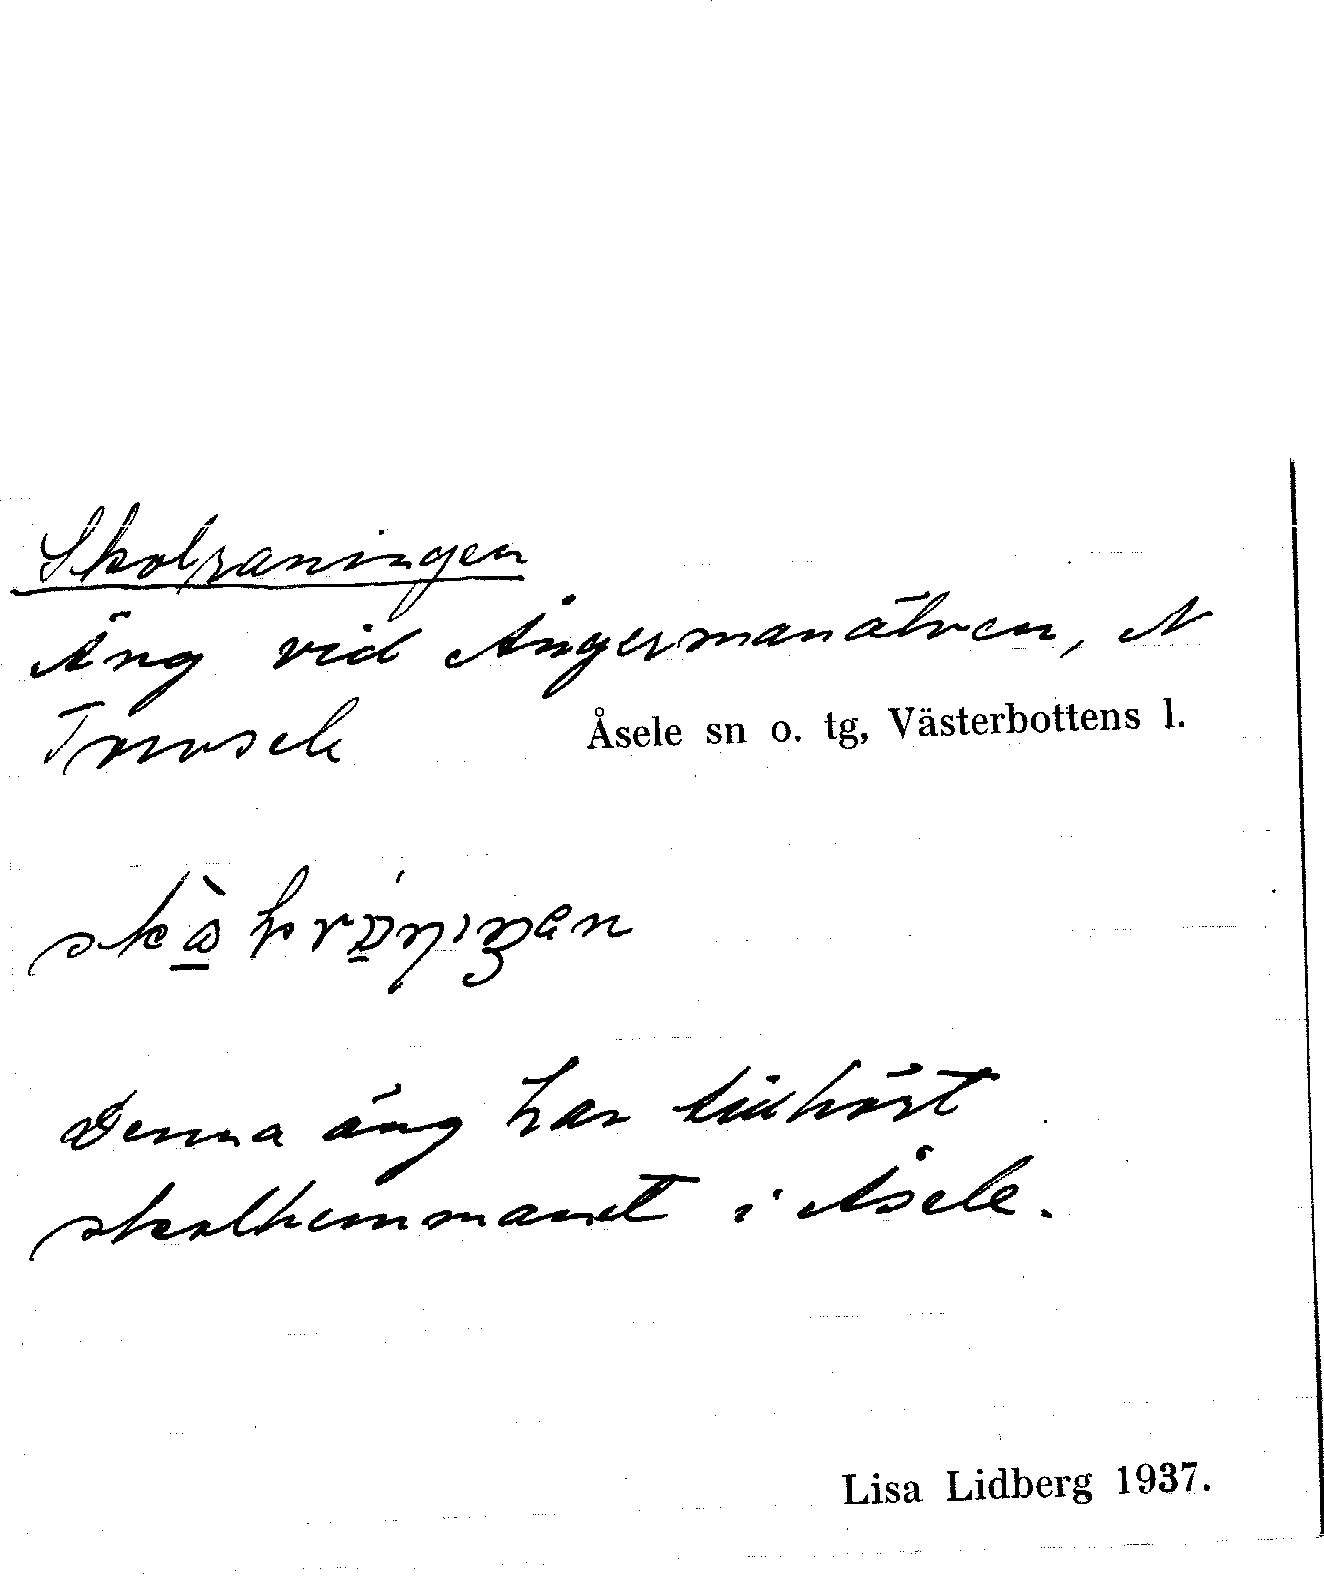 Skolraningen
Äng vid Ångermanälven, N
Tronsele Åsele sn o. tg, Västerbottens l.
Denna äng har tillhört
skolhemmanet i Åsele.
Lisa Lidberg 1937.